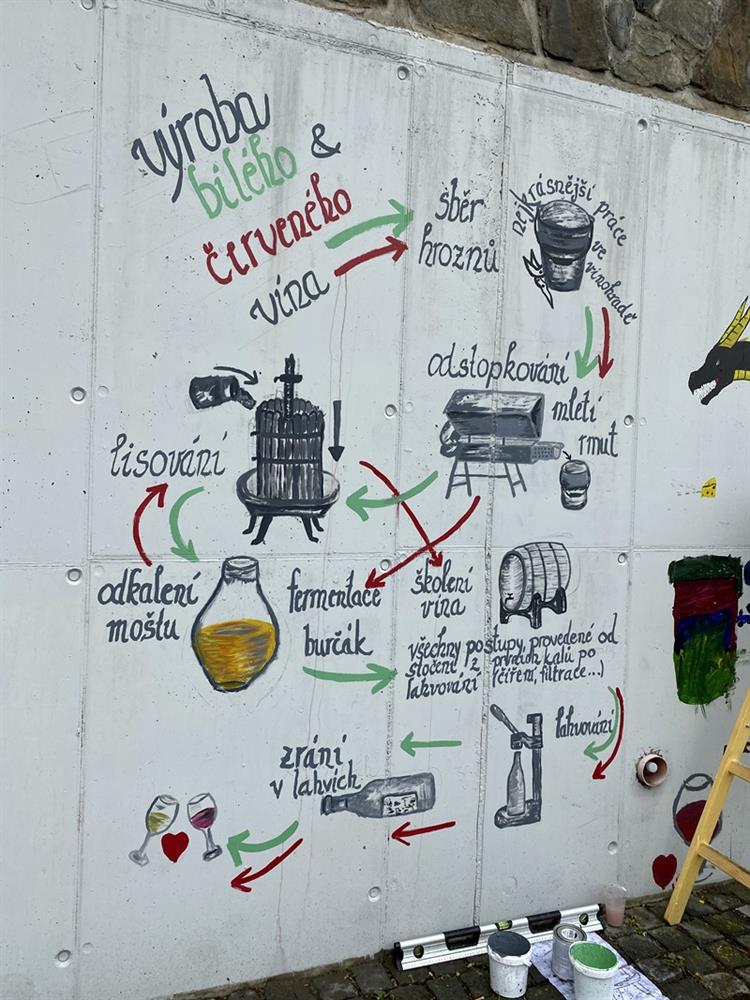 výroba
bílého &
červeného
vína
sběr
hroznů
nejkrásnější práce
ve
vinohradě
odstopkování
mletí
rmut
lisování
odkalení
moštu
fermentace
burčák
školení
vína
všechny postupy, provedené od
stočení z prvních kalů po
lahvování (čiření, filtrace...)
lahvování
zrání
v lahvích